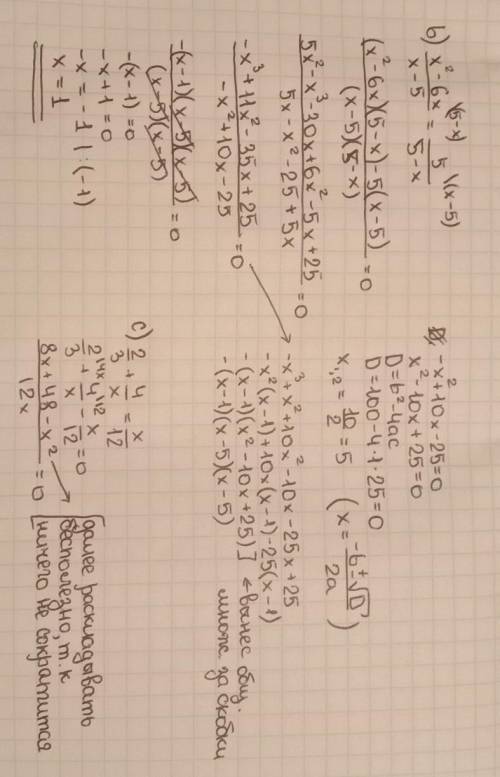 b) x² - 6x / x - 5 \(5-x) = 5 / 5 - x \(x-5)
(x² - 6x)(5 - x) - 5(x - 5) / (x - 5)(5 - x) = 0
5x² - x³ - 30x + 6x² - 5x + 25 / 5x - x² - 25 + 5x = 0
-x³ + 11x² - 35x + 25 / -x² + 10x - 25 = 0
-(x - 1)(x - 5)(x - 5) / (x - 5)(x - 5) = 0
-(x - 1) = 0
-x + 1 = 0
-x = -1 | : (-1)
x = 1
-x² + 10x - 25 = 0
x² - 10x + 25 = 0
D = b² - 4ac
D = 100 - 4·1·25 = 0
x₁,₂ = 10 / 2 = 5 (x = -b ± √D / 2a)
-x³ + x² + 10x² - 10x - 25x + 25
-x²(x - 1) + 10x(x - 1) - 25(x - 1)
-(x - 1)(x² - 10x + 25) ] ← вынес общ.
-(x - 1)(x - 5)(x - 5) множ за скобки
c) 2 / 3 + 4 / x = x / 12
2 / 3 \4x + 4 / x \12 - x / 12 = 0
8x + 48 - x² / 12x = 0
далее раскладывать
бесполезно, т.к
ничего не сократится